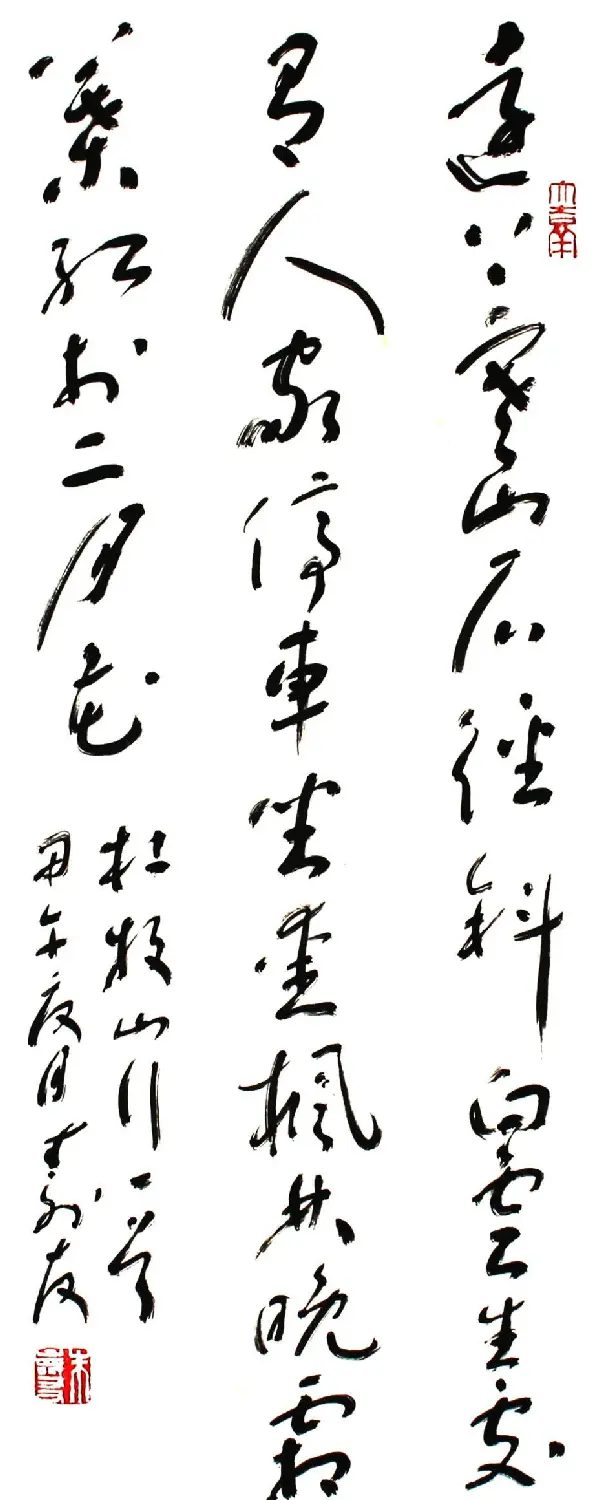 遠上寒山石徑斜白雲生處
大吉羊
有人家停車坐愛楓林晚霜
葉紅於二月花
杜牧山行一首
甲午夏月壽友